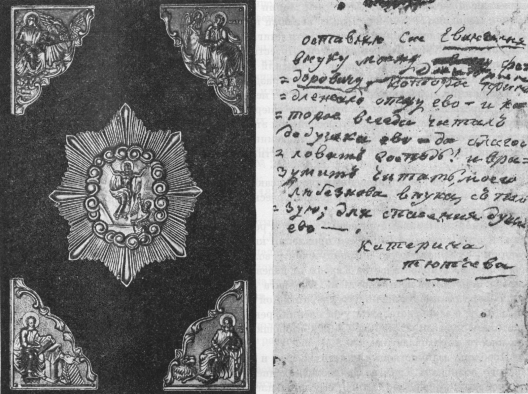 оставлю Сие Евангелия
внуку моему
=доровичу, которое прина
=длежало отцу ево — и ко
торое всегда читалъ
дедушка ево — да благос
=ловитъ Господь! и вра=
зумитъ читать, моего
любезнова внука, съ поль
=зую, для спасения души
ево —.
Катерина
Тютчева